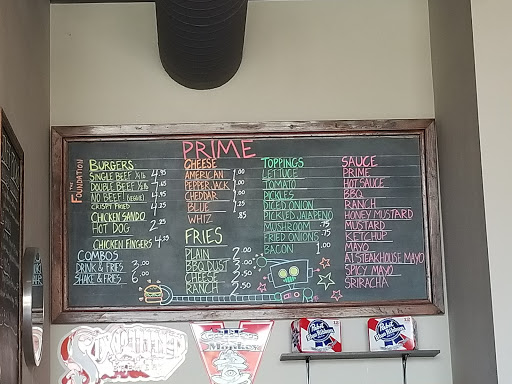 PRIME
THE FOUNDATION
BURGERS
SINGLE BEEF 1/4 lb 4.95
DOUBLE BEEF 1/2 lb 6.45
NO BEEF! (VEGGIE) 4.95
CRISPY FRIED 4.25
CHICKEN SANDO
HOT DOG 2.25
CHICKEN FINGERS 4.25
COMBOS
DRINK & FRIES 3.00
SHAKE & FRIES 6.00
CHEESE
AMERICAN 1.00
PEPPER JACK 1.00
CHEDDAR 1.00
BLUE 1.25
WHIZ .85
FRIES
PLAIN 2.00
BBQ DUST 2.50
CHEESE 3.50
RANCH 2.50
TOPPINGS
LETTUCE
TOMATO
PICKLES
DICED ONION
PICKLED JALAPEÑO
MUSHROOM .75
FRIED ONIONS .75
BACON 1.00
SAUCE
PRIME
HOT SAUCE
BBQ
RANCH
HONEY MUSTARD
MUSTARD
KETCHUP
MAYO
A1 STEAKHOUSE MAYO
SPICY MAYO
SRIRACHA
Pabst
Blue Ribbon
Pabst
Blue Ribbon